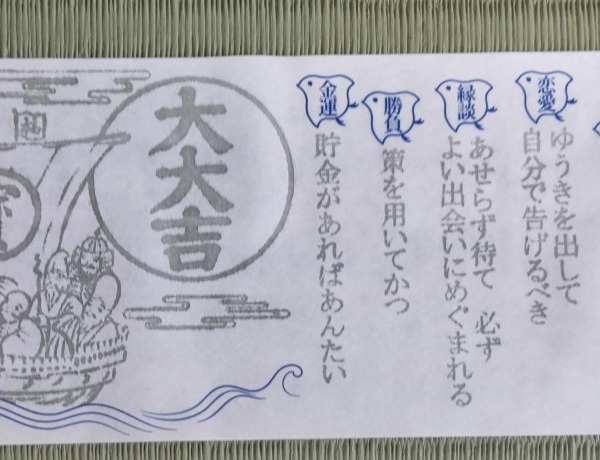 恋愛
ゆうきを出して
自分で告げるべき
縁談
あせらず待て 必ず
よい出会いにめぐまれる
勝負
策を用いてかつ
金運
貯金があればあんたい
大大吉
福